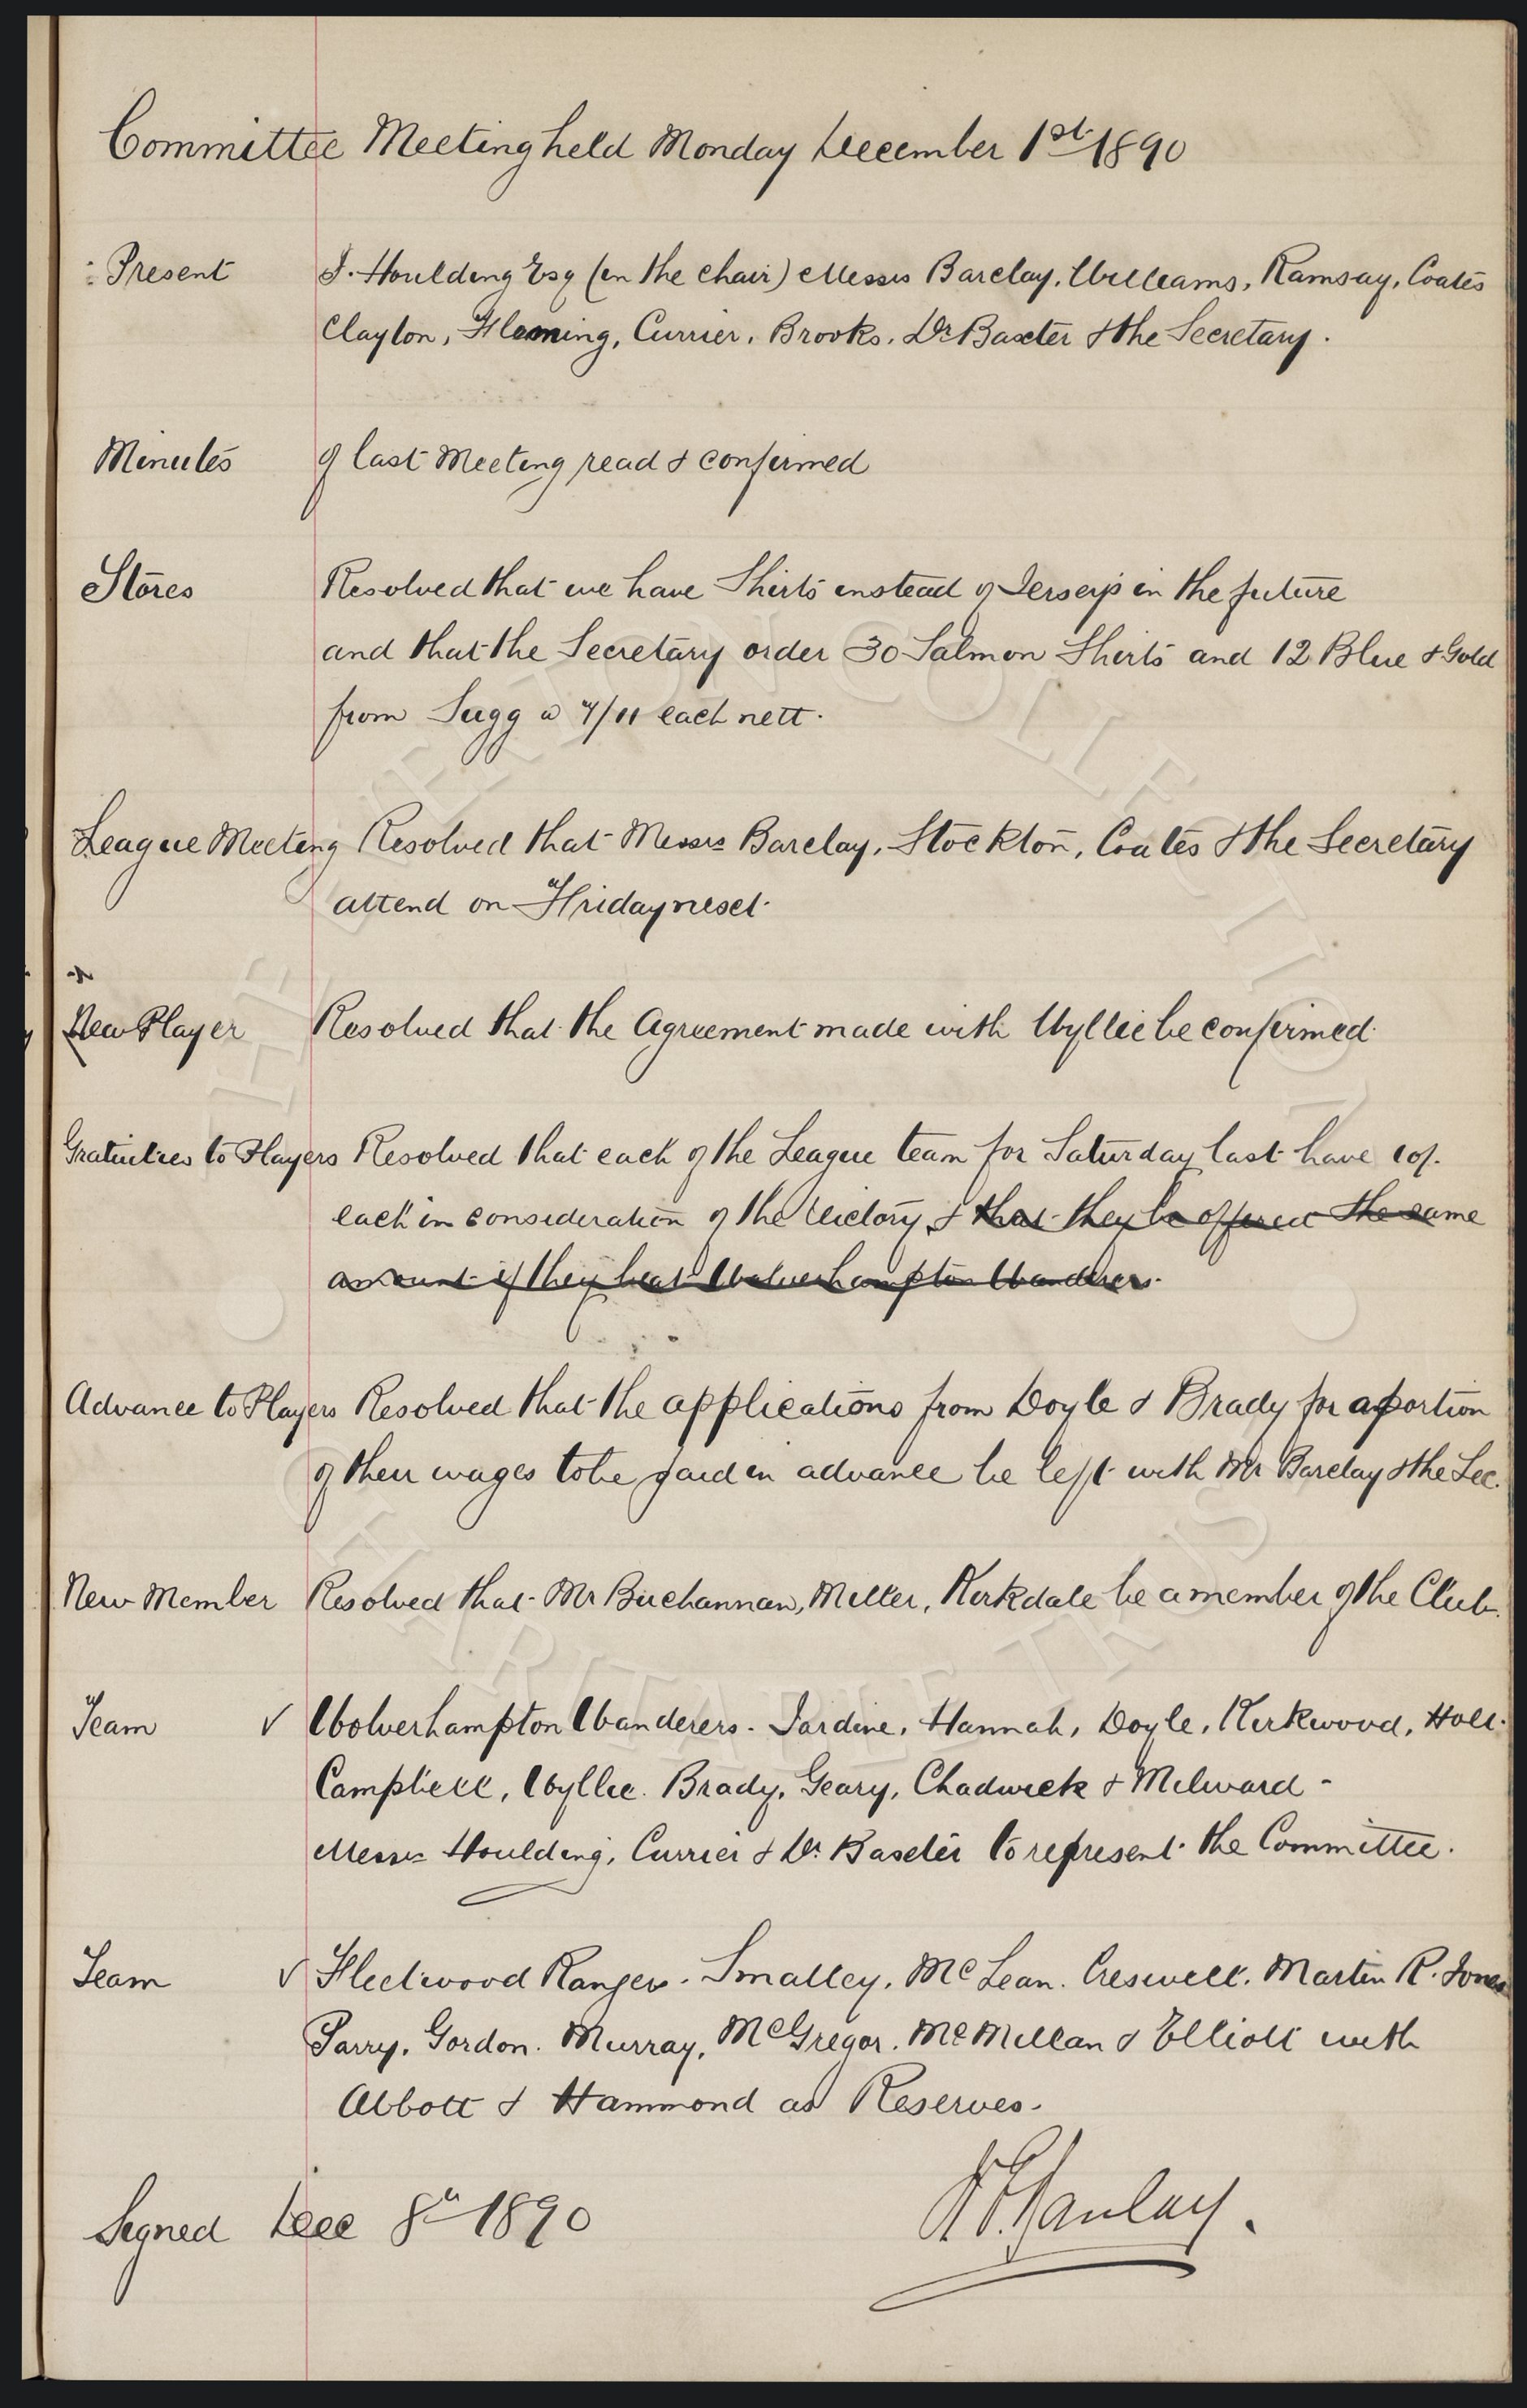 Committee Meeting held Monday December 1st 1890
Present J. Houlding Esq (in the chair) Messrs Barclay, Williams, Ramsay, Coates
Clayton, Fleming, Currier, Brooks, Dr Baxter & the Secretary.
Minutes of last Meeting read & confirmed
Stores Resolved that we have Shirts instead of Jerseys in the future
and that the Secretary order 30 Salmon Shirts and 12 Blue & Gold
from Sugg @ 4/11 each nett.
League Meeting Resolved that Messrs Barclay, Stockton, Coates & the Secretary
attend on Friday next.
New Player Resolved that the Agreement made with Wyllie be confirmed
Gratuities to Players Resolved that each of the League team for Saturday last have 10/-
each in consideration of the Victory & that they be offered the same
amount if they beat Wolverhampton Wanderers.
Advance to Players Resolved that the applications from Doyle & Brady for a portion
of their wages to be paid in advance be left with Mr Barclay & the Sec.
New Member Resolved that Mr Buchannan, Miller, Kirkdale be a member of the Club.
Team √ Wolverhampton Wanderers - Jardine, Hannah, Doyle, Kirkwood, Holt.
Campbell, Wyllie. Brady, Geary, Chadwick & Milward -
Messrs Houlding, Currier & Dr. Baxter to represent the Committee.
Team √ Fleetwood Rangers. Smalley, McLean. Creswell. Martin R. Jones
Parry, Gordon. Murray, McGregor. McMillan & Elliott with
Abbott & Hammond as Reserves.
Signed Dec 8th 1890
THE EVERTON COLLECTION
CHARITABLE TRUST